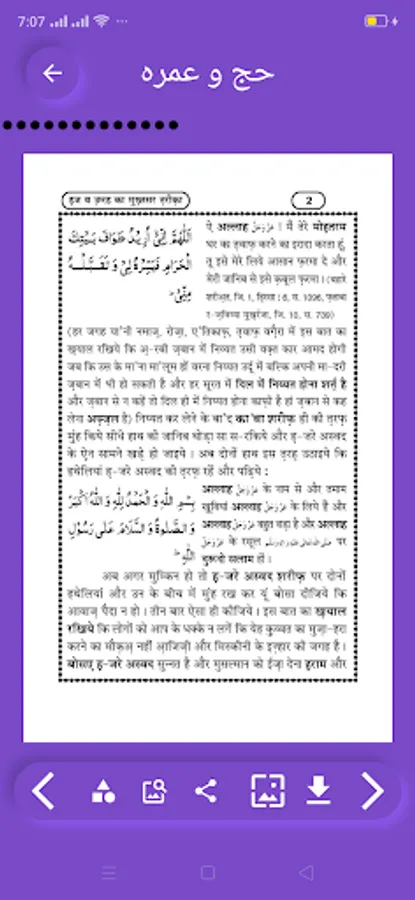 7:07
حج و عمرہ
हज व उ़म्रह का मुख़्तसर त़रीक़ा
2
اَللّٰهُمَّ اِنِّیْ اُرِیْدُ طَوَافَ بَیْتِكَ
الْحَرَامِ فَیَسِّرْهُ لِیْ وَ تَقَبَّلْهُ
مِنِّیْ ؕ
ऐ अल्लाह عَزَّوَجَلَّ ! मैं तेरे मोह़तरम
घर का त़वाफ़ करने का इरादा करता हूं,
तू इसे मेरे लिये आसान फ़रमा दे और
मेरी जानिब से इसे क़बूल फ़रमा । (बहारे
शरीअ़त, जि. 1, ह़िस्सा : 6, स. 1096, फ़तावा
र-ज़विय्या मुख़र्रजा, जि. 10, स. 739)
(हर जगह या'नी नमाज़, रोज़ा, ए'तिकाफ़, त़वाफ़ वग़ैरा में इस बात का
ख़याल रखिये कि अ़-रबी ज़बान में निय्यत उसी वक़्त कार आमद होगी
जब कि उस के मा'ना मा'लूम हों वरना निय्यत उर्दू में बल्कि अपनी मा-दरी
ज़बान में भी हो सकती है और हर सूरत में दिल में निय्यत होना शर्त़ है
और ज़बान से न कहें तो दिल ही में निय्यत होना काफ़ी है हां ज़बान से कह
लेना अफ़्ज़ल है) निय्यत कर लेने के बा'द का'बा शरीफ़ ही की त़रफ़
मुंह किये सीधे हाथ की जानिब थोड़ा सा स-रकिये और ह़-जरे अस्वद
के ऐन सामने खड़े हो जाइये । अब दोनों हाथ इस त़रह़ उठाइये कि
हथेलियां ह़-जरे अस्वद की त़रफ़ रहें और पढ़िये :
بِسْمِ اللّٰهِ وَ الْحَمْدُ لِلّٰهِ وَ اللّٰهُ اَكْبَرُ
وَ الصَّلٰوةُ وَ السَّلَامُ عَلٰی رَسُوْلِ
اللّٰهِ ؕ
अल्लाह عَزَّوَجَلَّ के नाम से और तमाम
ख़ूबियां अल्लाह عَزَّوَجَلَّ के लिये हैं और
अल्लाह عَزَّوَجَلَّ बहुत बड़ा है और अल्लाह
عَزَّوَجَلَّ के रसूल صلى الله تعالى عليه واله وسلم पर
दुरूदो सलाम हों ।
अब अगर मुम्किन हो तो ह़-जरे अस्वद शरीफ़ पर दोनों
हथेलियां और उन के बीच में मुंह रख कर यूं बोसा दीजिये कि
आवाज़ पैदा न हो । तीन बार ऐसा ही कीजिये । इस बात का ख़याल
रखिये कि लोगों को आप के धक्के न लगें कि येह क़ुव्वत का मुज़ा-हरा
करने का मौक़अ़ नहीं आ़जिज़ी और मिस्कीनी के इज़्हार की जगह है ।
बोसए ह़-जरे अस्वद सुन्नत है और मुसल्मान को ईज़ा देना ह़राम और